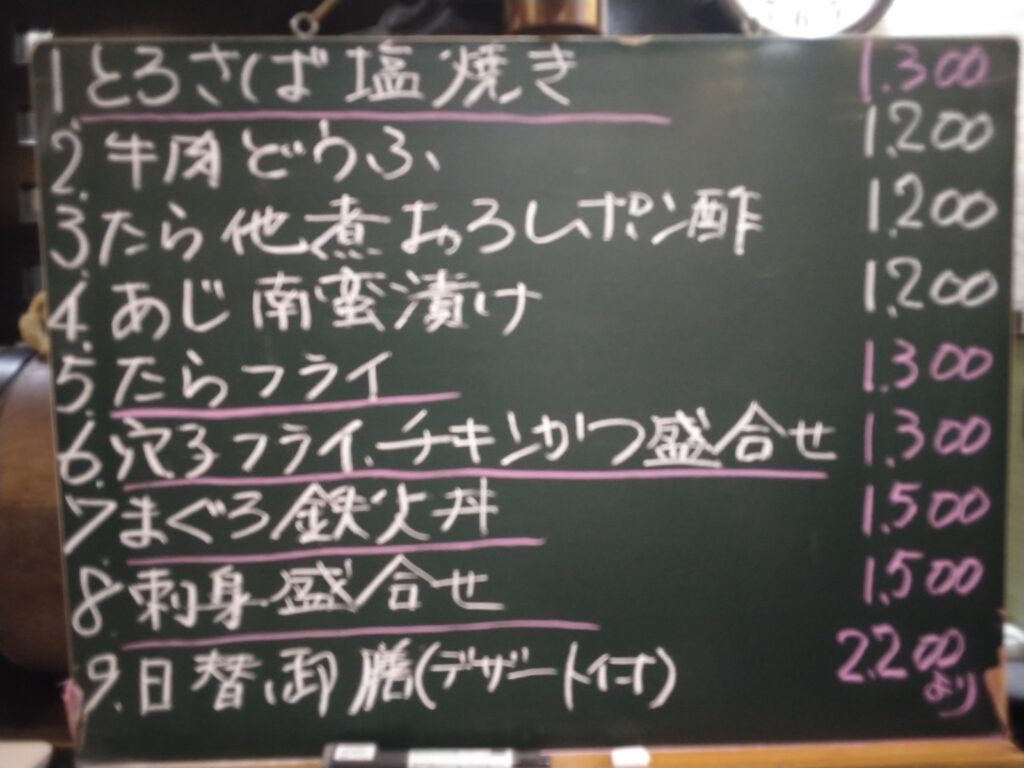 1 とろさば塩焼き 1.300
2. 牛肉どうふ 1.200
3. たら他煮おろしポン酢 1.200
4. あじ南蛮漬け 1.200
5. たらフライ 1.300
6. 穴子フライ、チキンかつ盛合せ 1.300
7. まぐろ鉄火丼 1.500
8. 刺身盛合せ 1.500
9. 日替御膳(デザート付) 2.200より